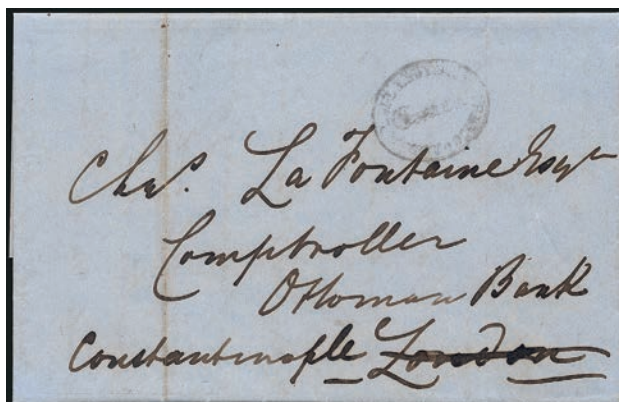 Chas. La Fontaine Esqr
Comptroller
Ottoman Bank
Constantinople London